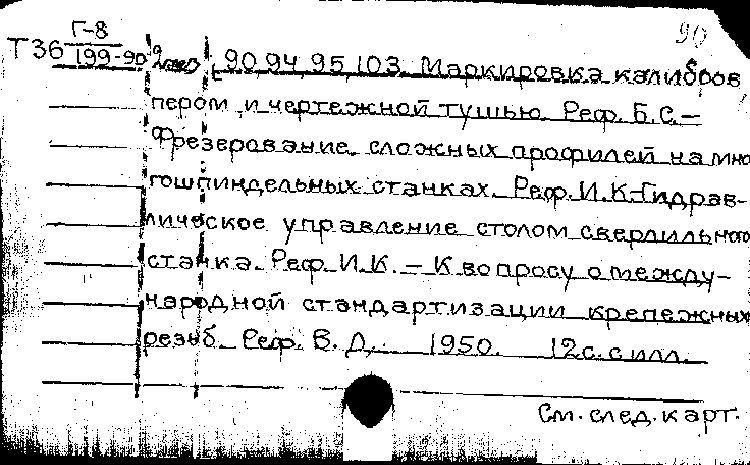 90
Г-8
Т36 199-90 90,94,95,103. Маркировка калибров
пером и чертежной тушью. Реф. Б.С.—
Фрезерование сложных профилей на мно
гошпиндельных станках. Реф. И.К-Гидрав-
лическое управление столом сверлильного
станка. Реф. И.К. — К вопросу о между-
народной стандартизации крепежных
резьб. Реф. В.Д. 1950. 12с. с илл.
См. след. карт.